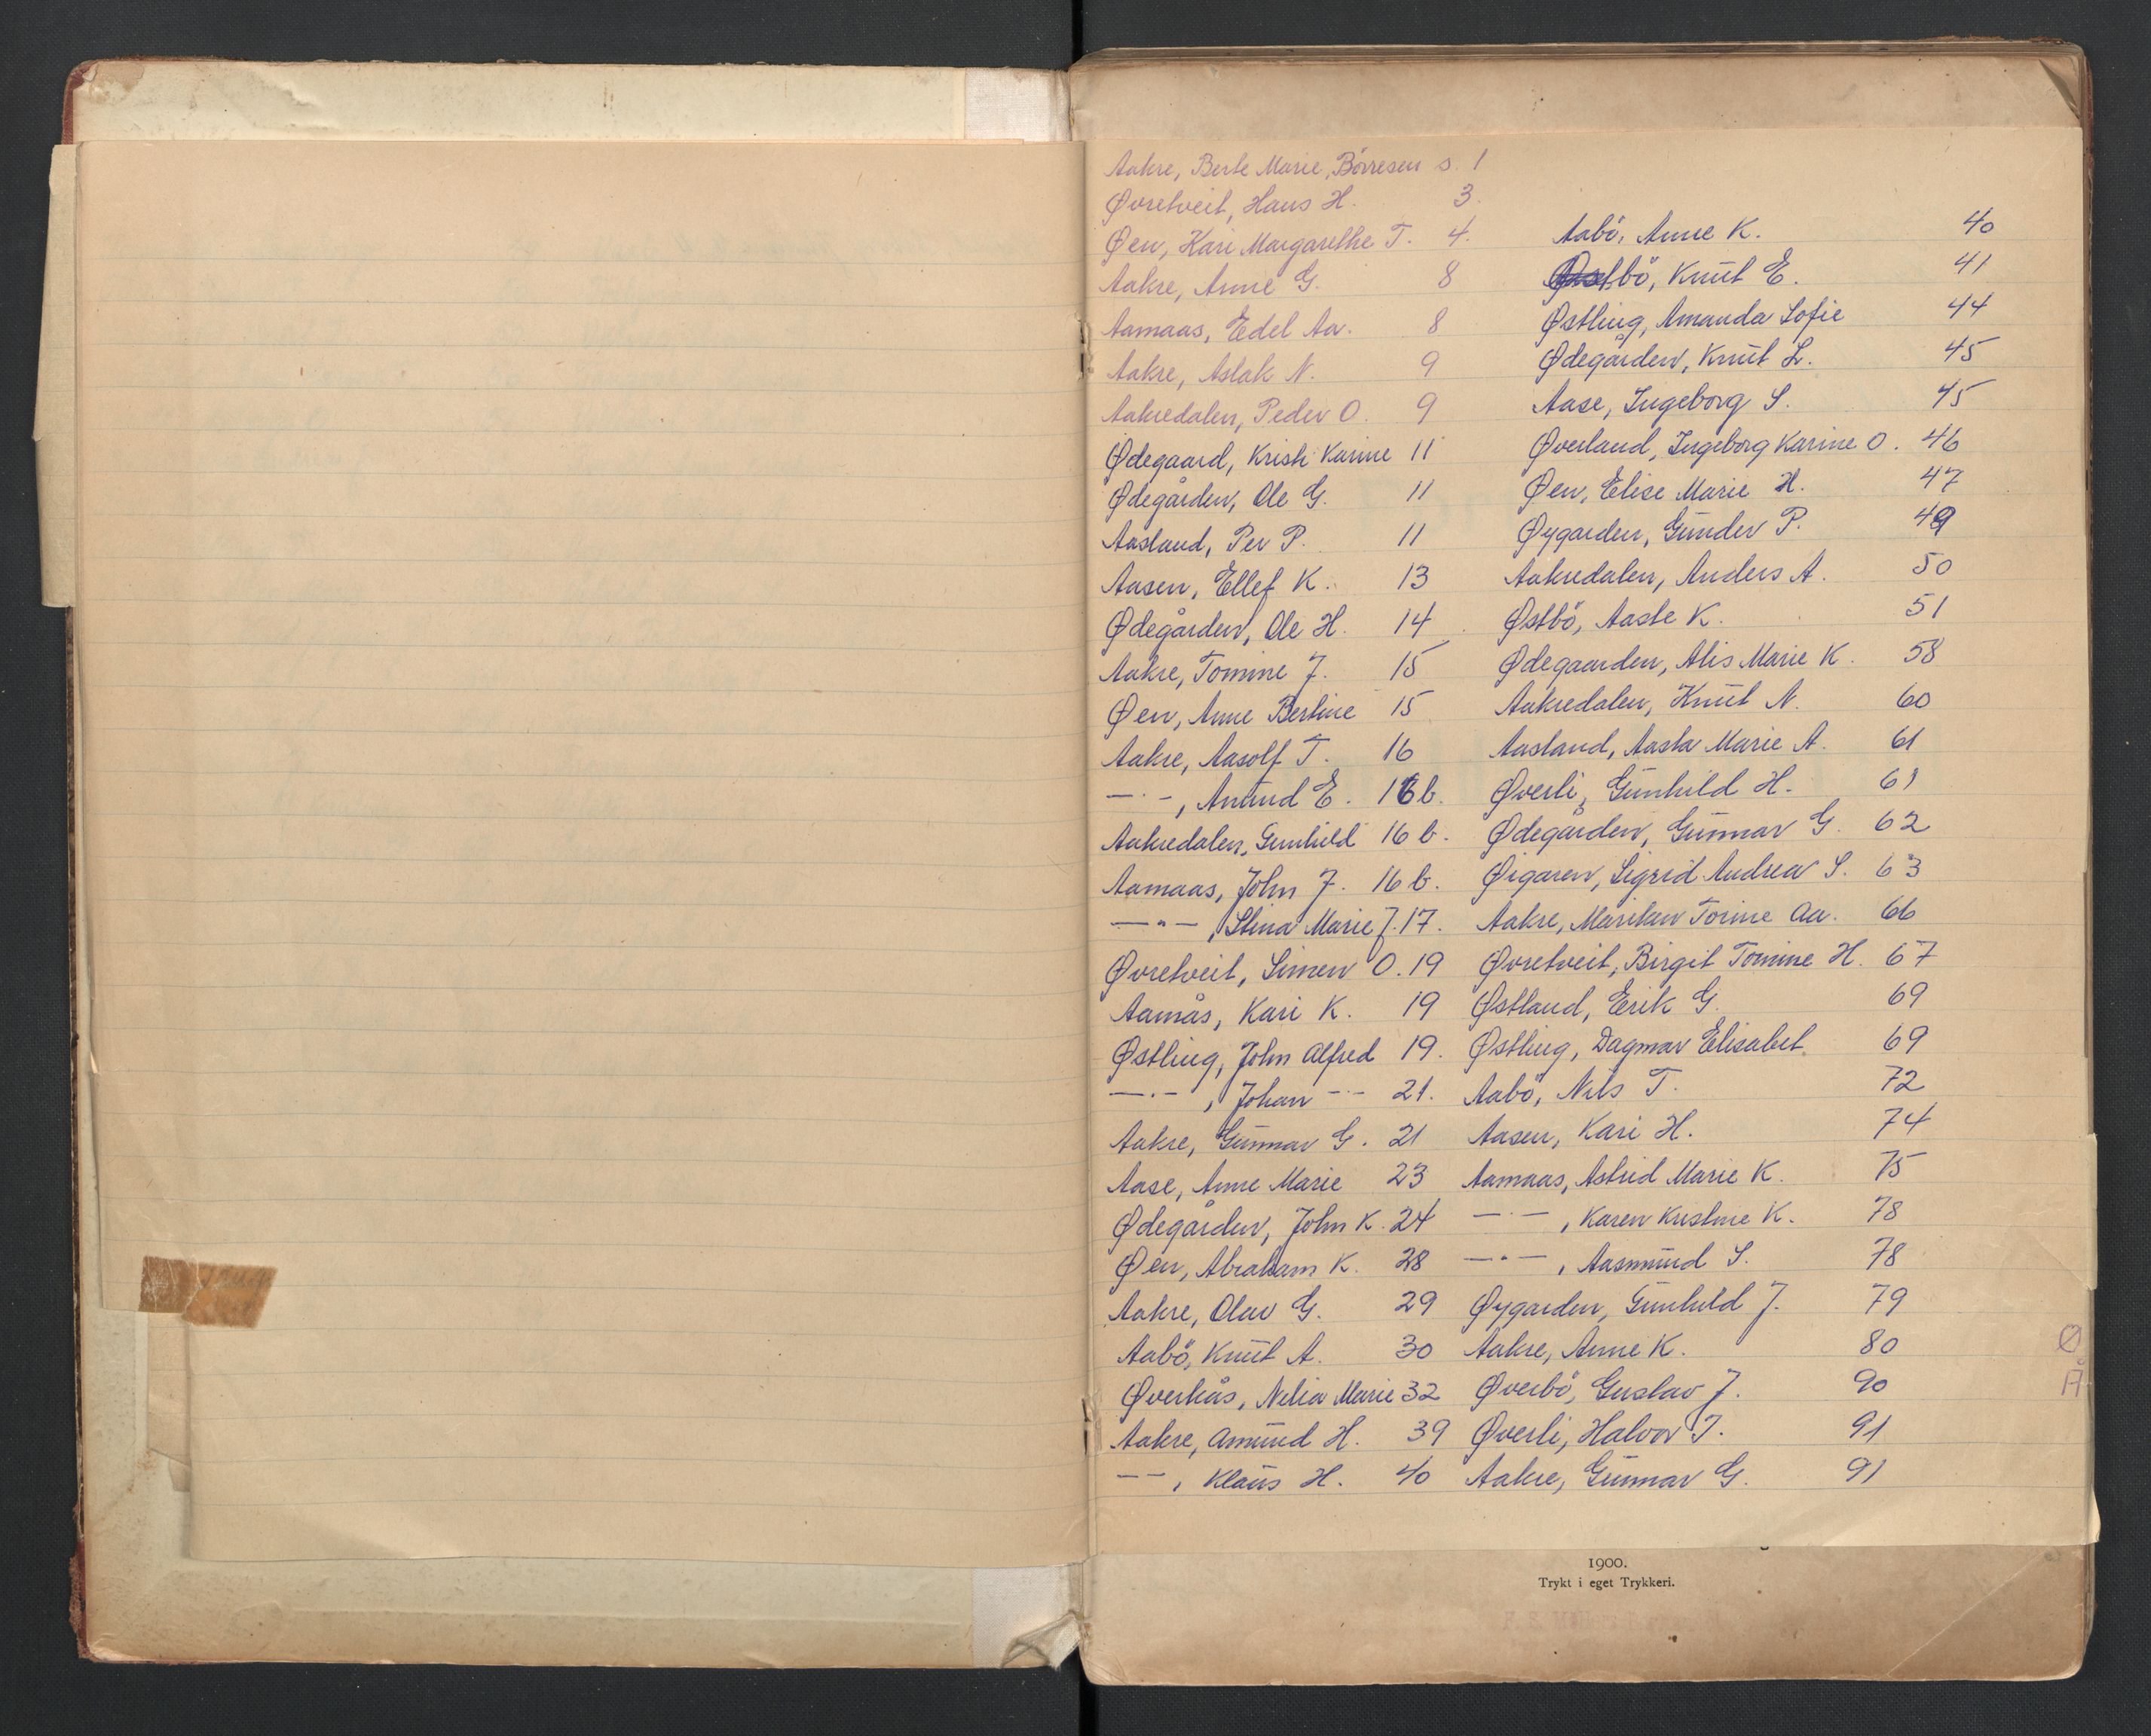 Aakre, Berte Marie, Börresen s. 1
Øvretveit, Hans H. 3.
Øen, Kari Margarethe T. 4.
Aakre, Anne G. 8
Aamaas, Edel Aa. 8
Aakre, Aslak N. 9
Aakredalen, Peder O. 9
Ødegaard, Kristi Karine 11
Ødegården, Ole G. 11
Aasland, Per P. 11
Aasen, Ellef K. 13
Ødegården, Ole H. 14
Aakre, Tomine J. 15
Øen, Anne Bertine 15
Aakre, Aasolf T. 16
—·-, Anund E. 16 b.
Aakredalen, Gunhild 16 b.
Aamaas, John J. 16 b.
—"—, Stina Marie J. 17.
Øvretveit, Simen O. 19
Aamås, Kari K. 19
Østling, John Alfred 19.
—·-, Johan -·- 21.
Aakre, Gunnar G. 21
Aase, Anne Marie 23
Ødegården, John K. 24
Øen, Abraham K. 28
Aakre, Olav G. 29
Aabö, Knut A. 30
Øverkås, Nilia Marie 32
Aakre, Amund H. 39
—-, Klaus H. 40
Aabö, Anne K. 40
bö, Knut E. 41
Østling, Amanda Sofie 44
Ødegården, Knut L. 45
Aase, Ingeborg S. 45
Øverland, Ingeborg Karine O. 46
Øen, Elise Marie H. 47
Øygarden, Gunder P. 49
Aakredalen, Anders A. 50
Østbö, Aaste K. 51
Ødegaarden, Alis Marie K. 58
Aakredalen, Knut N. 60
Aasland, Aasta Marie A. 61
Øverli, Gunhild H. 61
Ødegården, Gunnar G. 62
Øigaren, Sigrid Andrea S. 63
Aakre, Torine Aa. 66
Øvretveit, Birgit Tomine H. 67
Østland, Erik G. 69
Østling, Dagmar Elisabet 69
Aabö, Nils T. 72
Aasen, Kari H. 74
Aamaas, Astrid Marie K. 75
—·—, Karen Kristine K. 78
—"—, Aasmund S. 78
Øygarden, Gunhild J. 79
Aakre, Anne K. 80
Øverbö, Gustav J. 90
Øverli, Halvor T. 91
Aakre, Gunnar G. 91
Ø
Å
1900.
Trykt i eget Trykkeri.